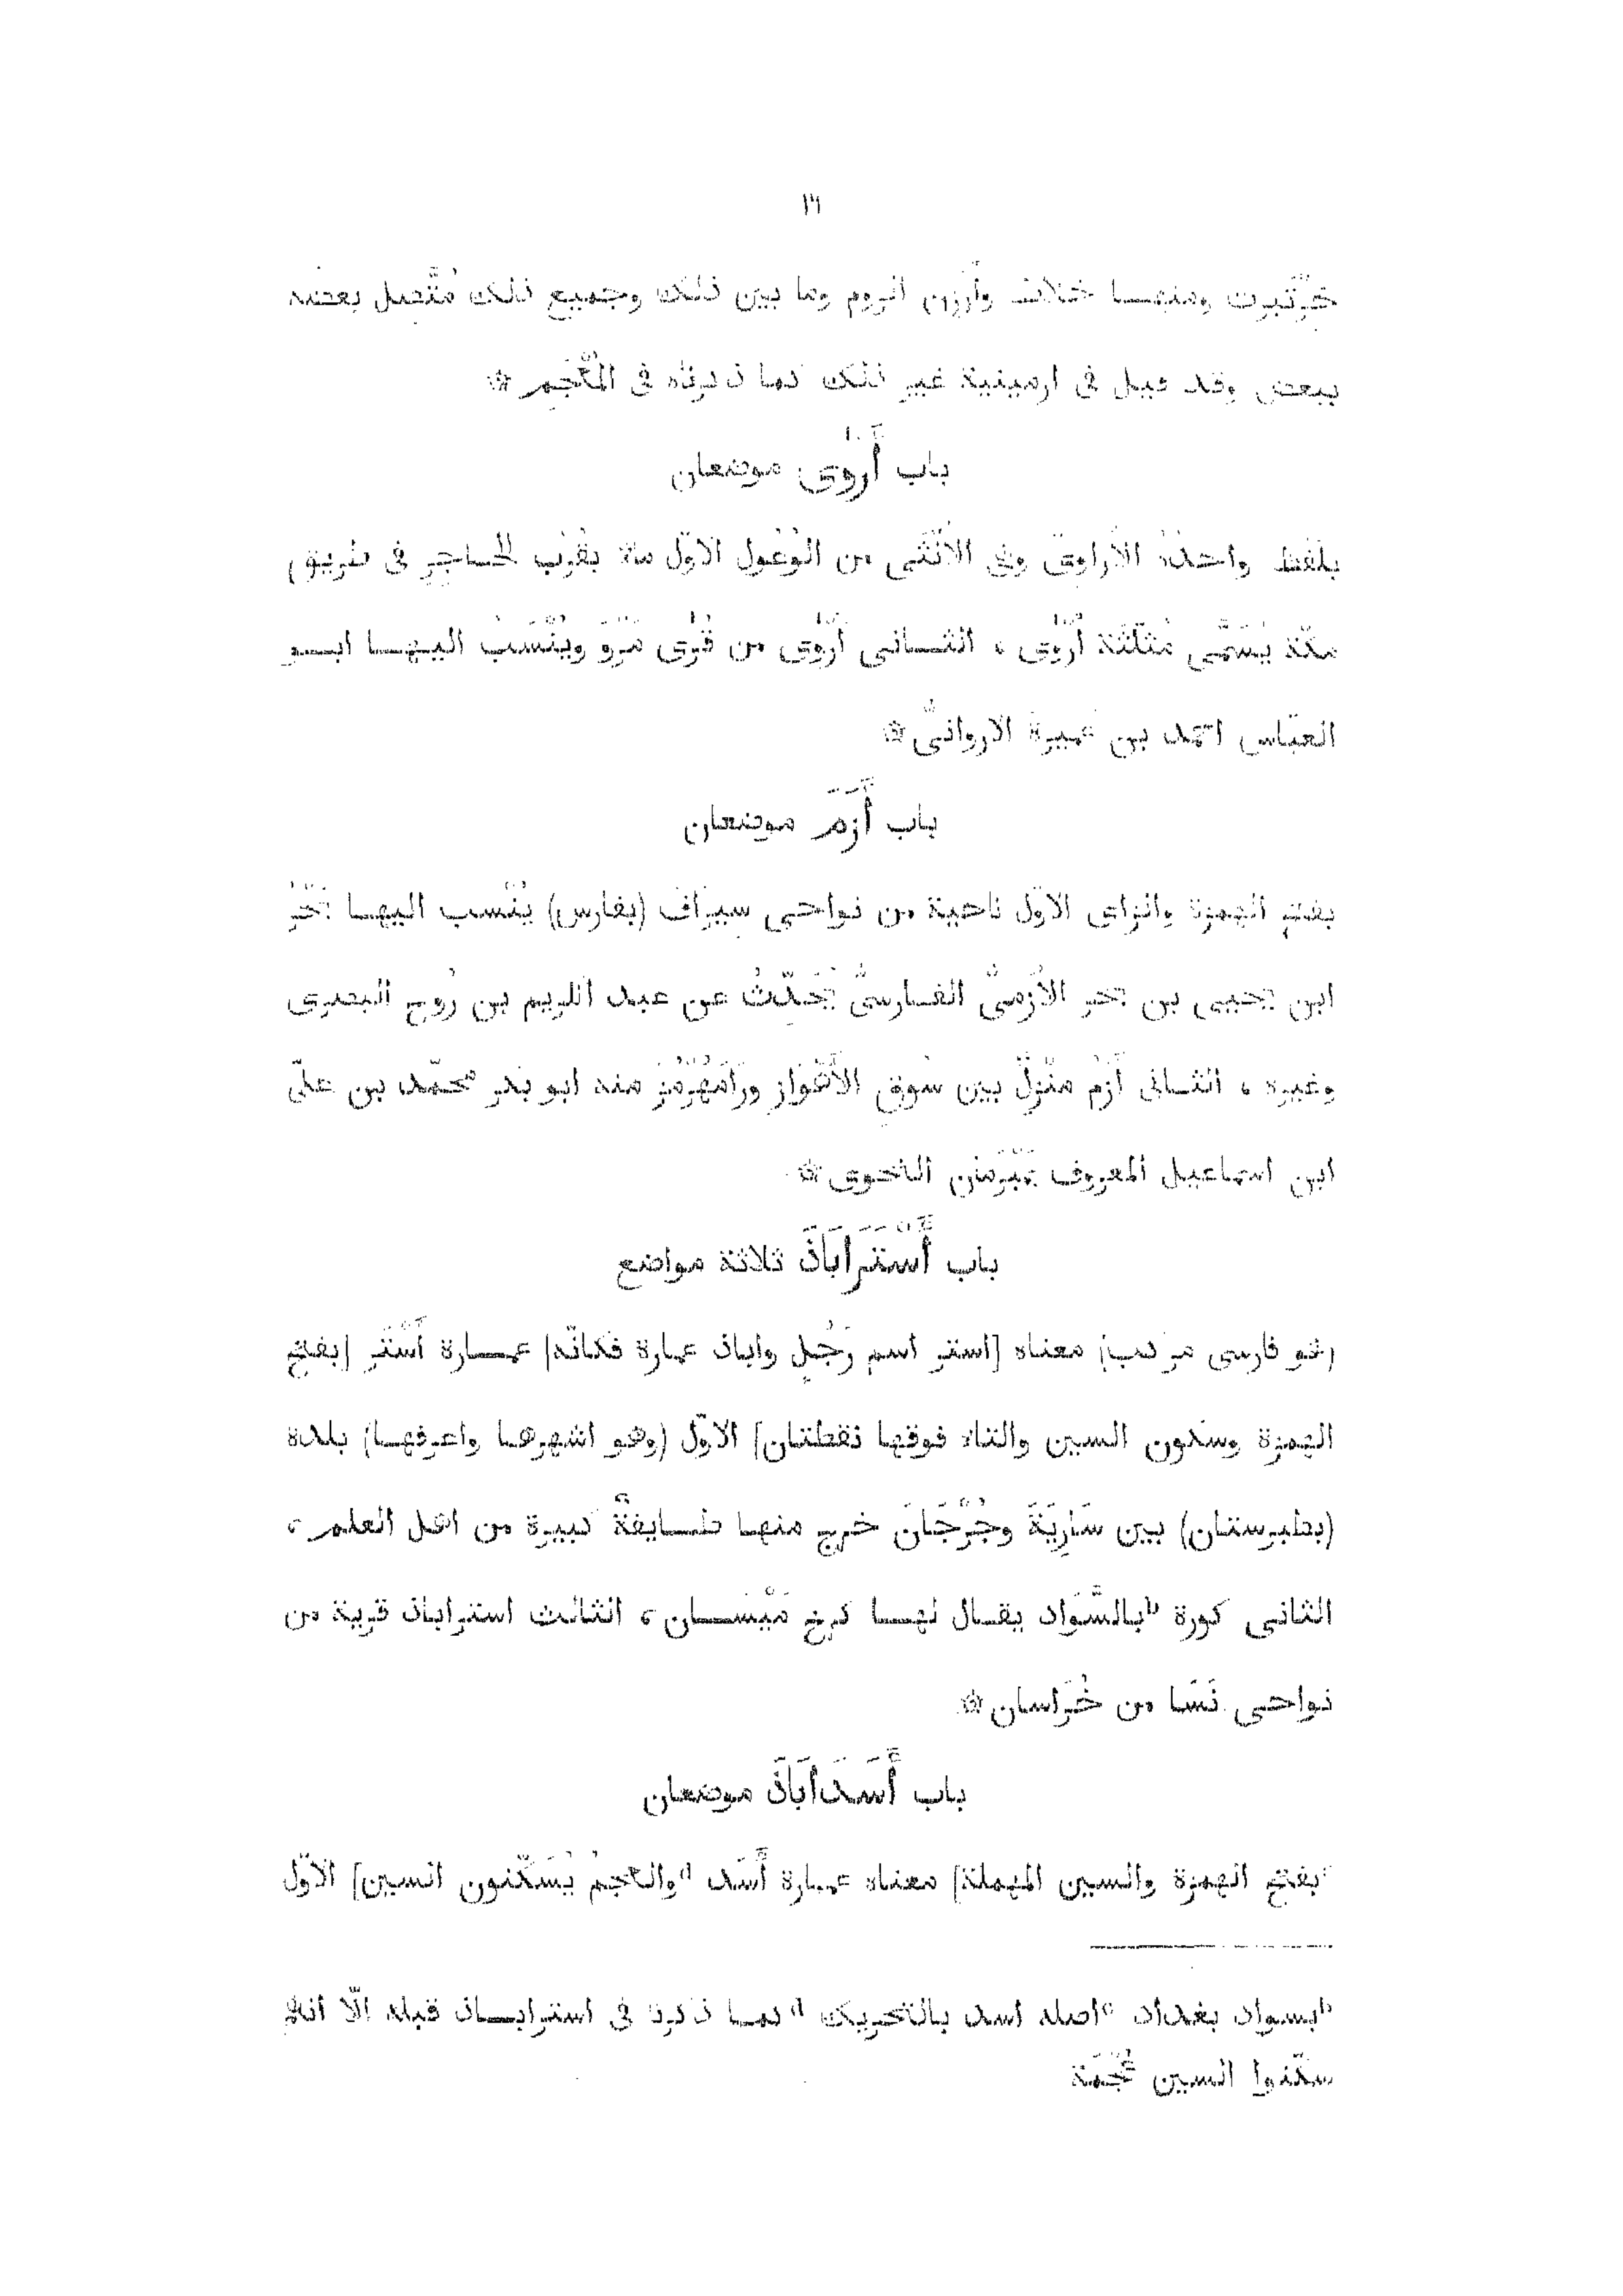 ١٦
خَرْتَبِرت ومنها خلاط وأَرْزن الروم وما بين ذلك وجميع ذلك مُتَّصل بعضه
ببعض وقد قيل فى ارمينية غير ذلك كما ذكرناه فى المُعْجَم ۞
باب أَرْوَى موضعان
بلفظ واحدة الأَراوىّ وهى الأُنْثَى من الوُعُول الاوّل ماء بقُرْب الحاجر فى طريق
مكّة يُسَمَّى مُثَلَّثَة أَرْوَى ، الثانى أَرْوَى من قُرَى مَرْو ويُنْسَب اليها ابو
العبّاس احمد بن عميرة الاروانىّ ۞
باب أَزَم موضعان
بفتح الهمزة والزاى الاوّل ناحية من نواحى سيراف (بفارس) يُنْسب اليها بَحْرُ
ابن يحيى بن بحر الأَزَمىّ الفارسىّ يُحَدِّثُ عن عبد الكريم بن رُوح البصرى
وغيره ، الثانى أَزَم منْزلٌ بين سُوق الأَهْوَاز ورَامَهُرْمُز منه ابو بكر محمّد بن علىّ
ابن اسماعيل المعروف بمَبْرَمَان النحوى ۞
باب أَسْتَرَابَاذَ ثلاثة مواضع
[هو فارسى مركب] معناه [استر اسم رَجُلٍ واباذ عمارة فكانّه] عمارة أَسْتَر [بفتح
الهمزة وسكون السين والتاء فوقها نقطتان] الاوّل (وهو اشهرها واعرفها) بلدة
(بطبرستان) بين سَارِيَةَ وجُرْجَانَ خرج منها طايفةٌ كبيرة من اهل العلم ،
الثانى كورة "بالسَّوَاد يقال لها كرخ مَيْسَان ، الثالث استراباذ قرية من
نواحى نَسَا من خُرَاسان ۞
باب أَسَدَابَاذَ موضعان
[بفتح الهمزة والسين المهملة] معناه عمارة أَسَد "والعجمُ يُسَكّنون السين] الاوّل
"بسواد بغداد "اصله اسد بالتحريك "كما ذكرنا فى استراباذ قبله الّا انهم
سكّنوا السين عُجْمَة